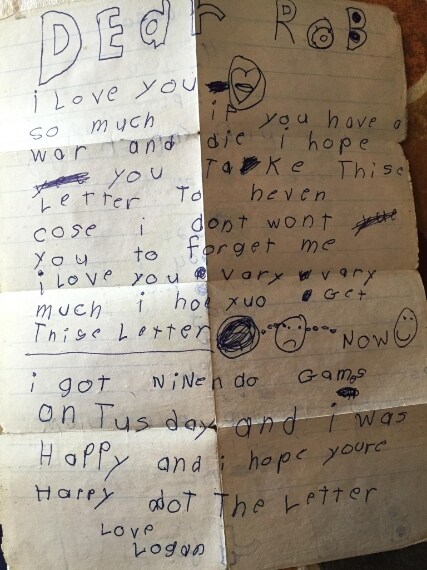 DEar RoB
i Love you
so much if you have a
war and die i hope
you Take Thise
Letter To heven
cose i dont wont
you to forget me
i Love you vary vary
much i hop xuo Get
Thise Letter Now
i got NiNendo Games
on Tus day and i was
Happy and i hope youre
Happy abot The Letter
Love
Logan